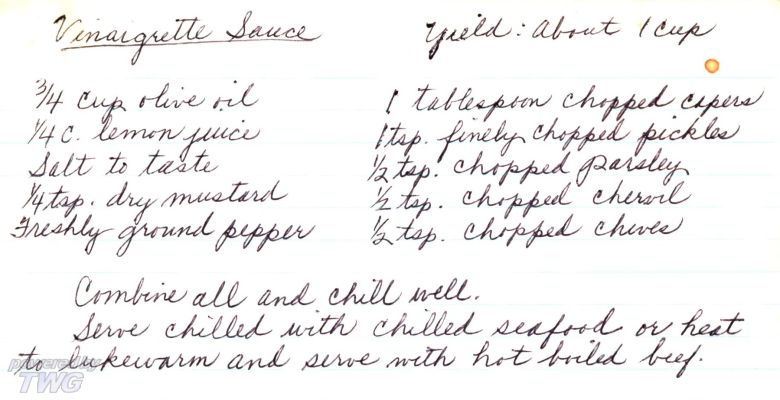 Vinaigrette Sauce
Yield: About 1 cup
3/4 cup olive oil
1/4 c. lemon juice
Salt to taste
1/4 tsp. dry mustard
Freshly ground pepper
1 tablespoon chopped capers
1 tsp. finely chopped pickles
1/2 tsp. chopped parsley
1/2 tsp. chopped chervil
1/2 tsp. chopped chives
Combine all and chill well.
Serve chilled with chilled seafood or heat
to lukewarm and serve with hot boiled beef.
powered by
TWG